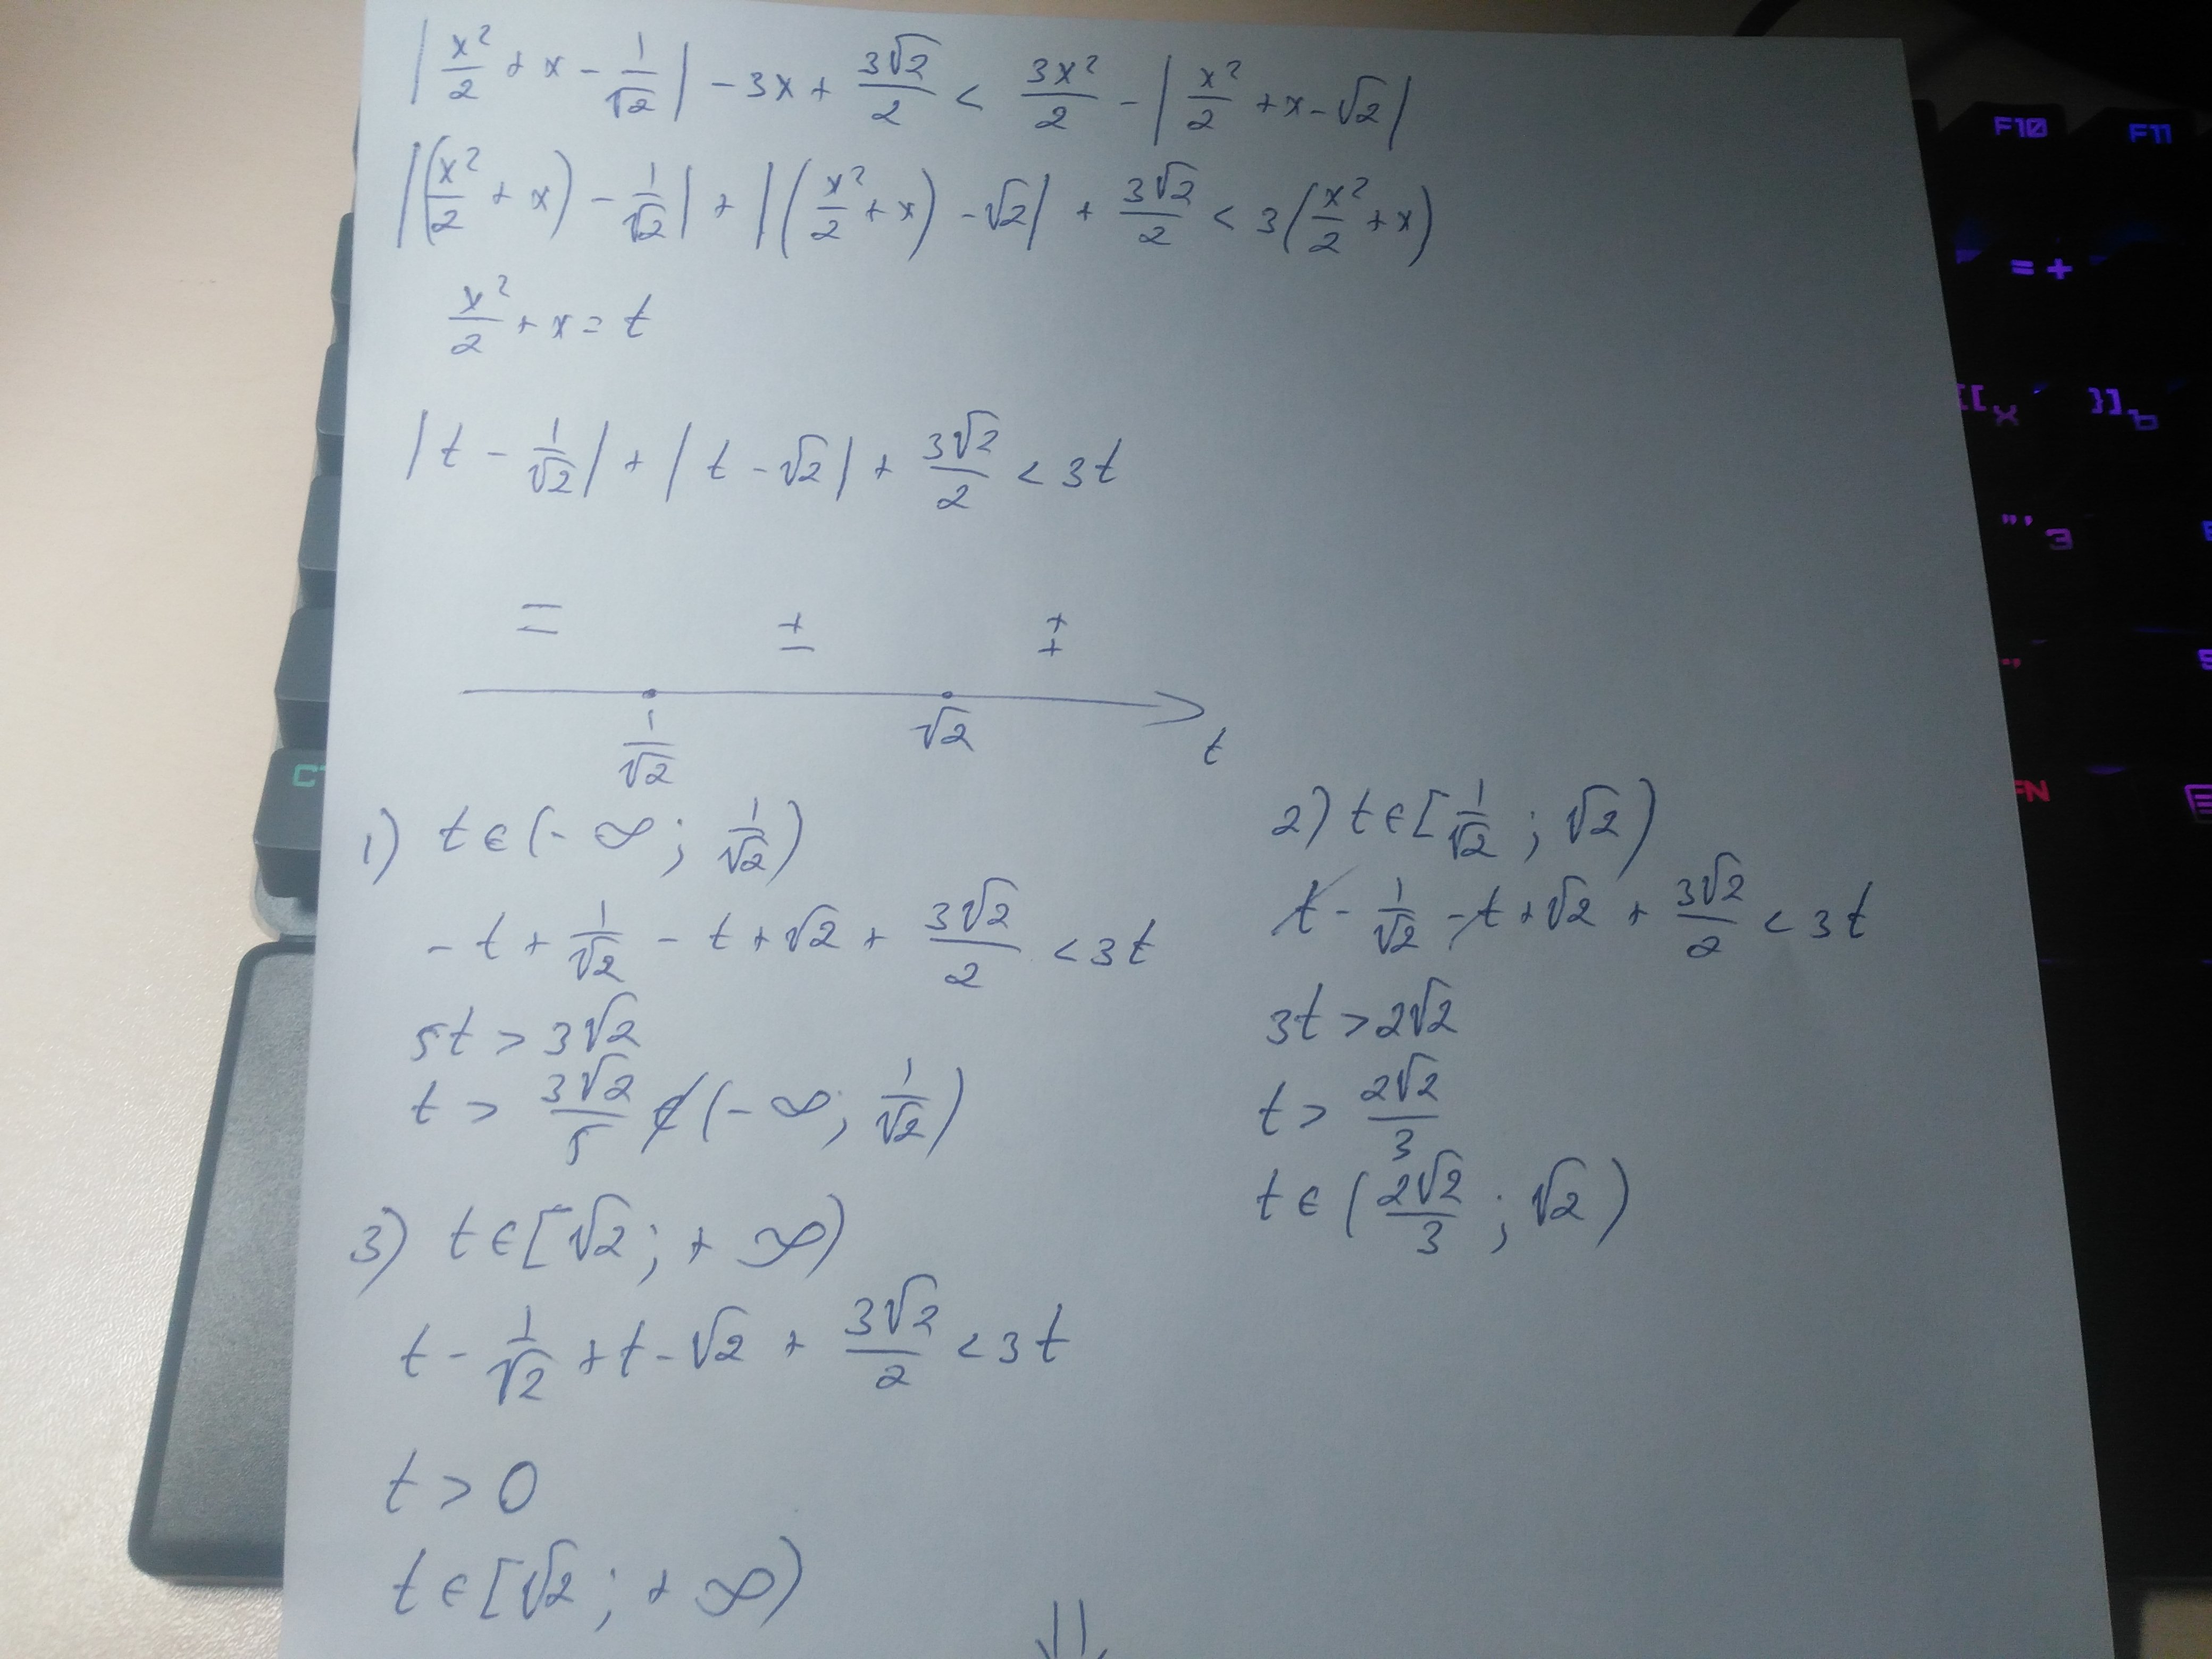 |x²/2 + x - 1/√2| - 3x + 3√2/2 < 3x²/2 - |x²/2 + x - √2|
|(x²/2 + x) - 1/√2| + |(x²/2 + x) - √2| + 3√2/2 < 3(x²/2 + x)
x²/2 + x = t
|t - 1/√2| + |t - √2| + 3√2/2 < 3t
- - + - + +
1/√2 √2 t
1) t ∈ (-∞; 1/√2)
-t + 1/√2 - t + √2 + 3√2/2 < 3t
5t > 3√2
t > 3√2/5 ∉ (-∞; 1/√2)
2) t ∈ [1/√2; √2)
t - 1/√2 - t + √2 + 3√2/2 < 3t
3t > 2√2
t > 2√2/3
t ∈ (2√2/3; √2)
3) t ∈ [√2; +∞)
t - 1/√2 + t - √2 + 3√2/2 < 3t
t > 0
t ∈ [√2; +∞)
⇓
F10 F11
= +
{[ x }] ъ
"' э
FN